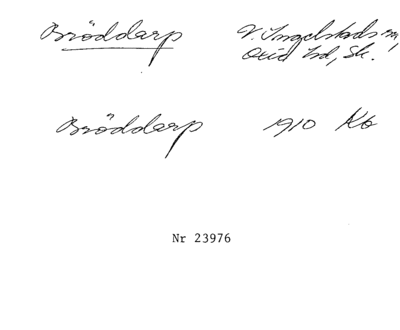 Bröddarp V. Ingelstads sn,
Oxie hd, Sk.
Bröddarp 1910 Kb
Nr 23976